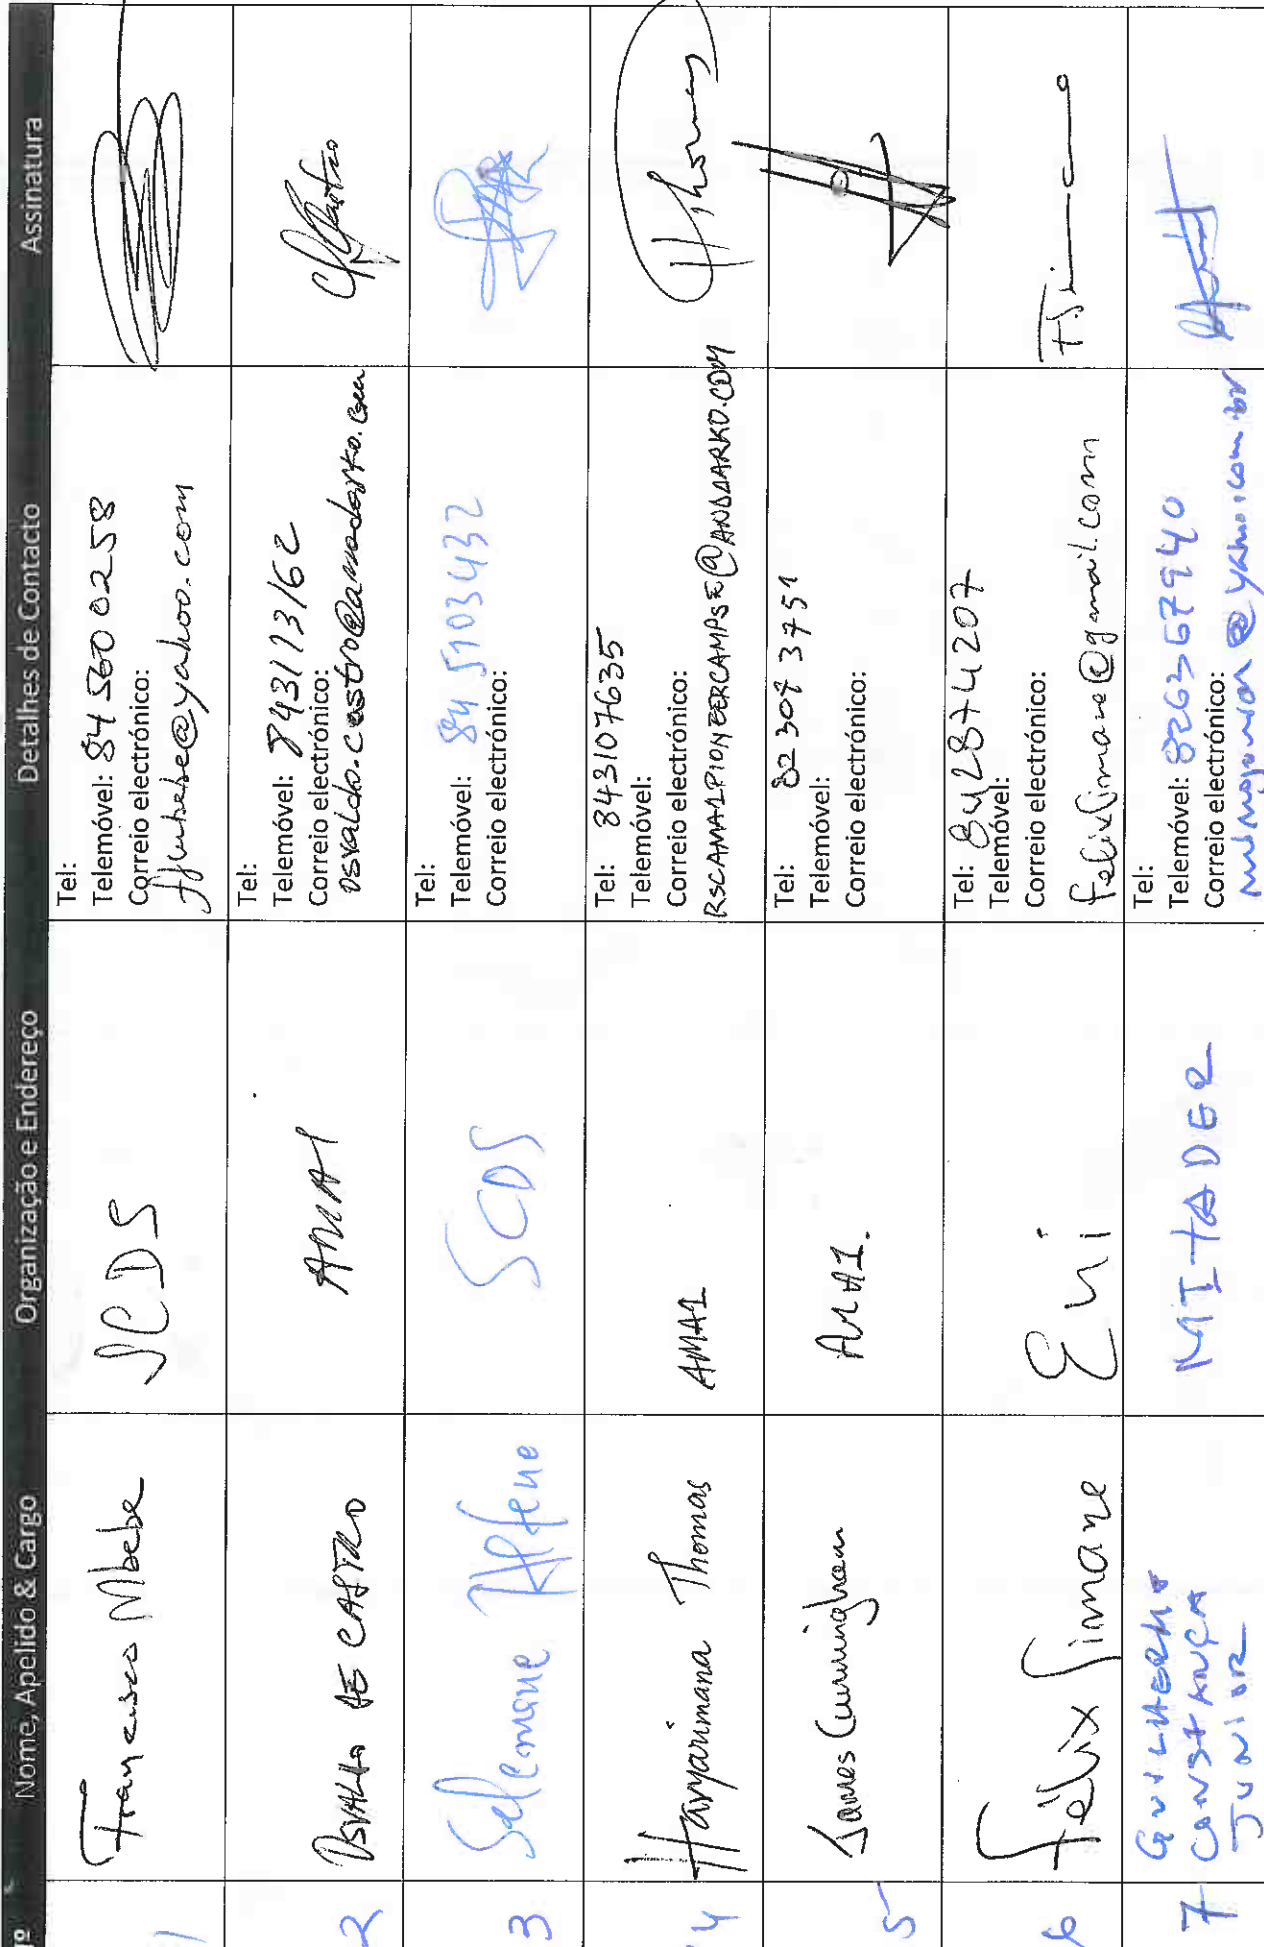 Nº
Nome, Apelido & Cargo
Organização e Endereço
Detalhes de Contacto
Assinatura
1
Francisco Mbebe
SCDS
Tel:
Telemóvel: 84 560 0258
Correio electrónico:
2
OSVALDO DE CASTRO
AMA1
Tel:
Telemóvel: 843113162
Correio electrónico:
osvaldo.castro@anadarko.com
3
Selemane
SCDS
Tel:
Telemóvel: 84 5103432
Correio electrónico:
4
Havyarimana Thomas
AMA1
Tel: 843107635
Telemóvel:
Correio electrónico:
RSCAMA1PIONEERCAMPSE@ANADARKO.COM
5
James Cunningham
AMA1.
Tel: 82 309 3751
Telemóvel:
Correio electrónico:
6
Félix Simane
Eni
Tel: 84 2874207
Telemóvel:
Correio electrónico:
felixsimane@gmail.com
F.Simane
7
GUILHERME
CONSTANÇA
JUNIOR
MITADER
Tel:
Telemóvel: 826367940
Correio electrónico:
@yahoo.com.br